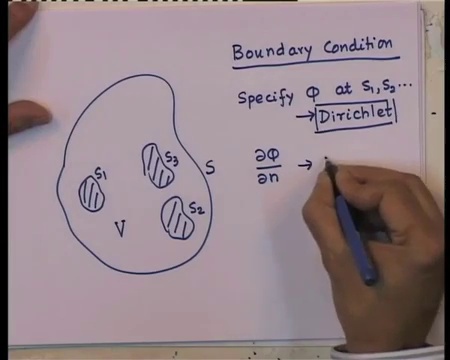 Boundary Condition
Specify Φ at S1, S2...
→ Dirichlet
∂Φ/∂n →
S3
S
S1
S2
V